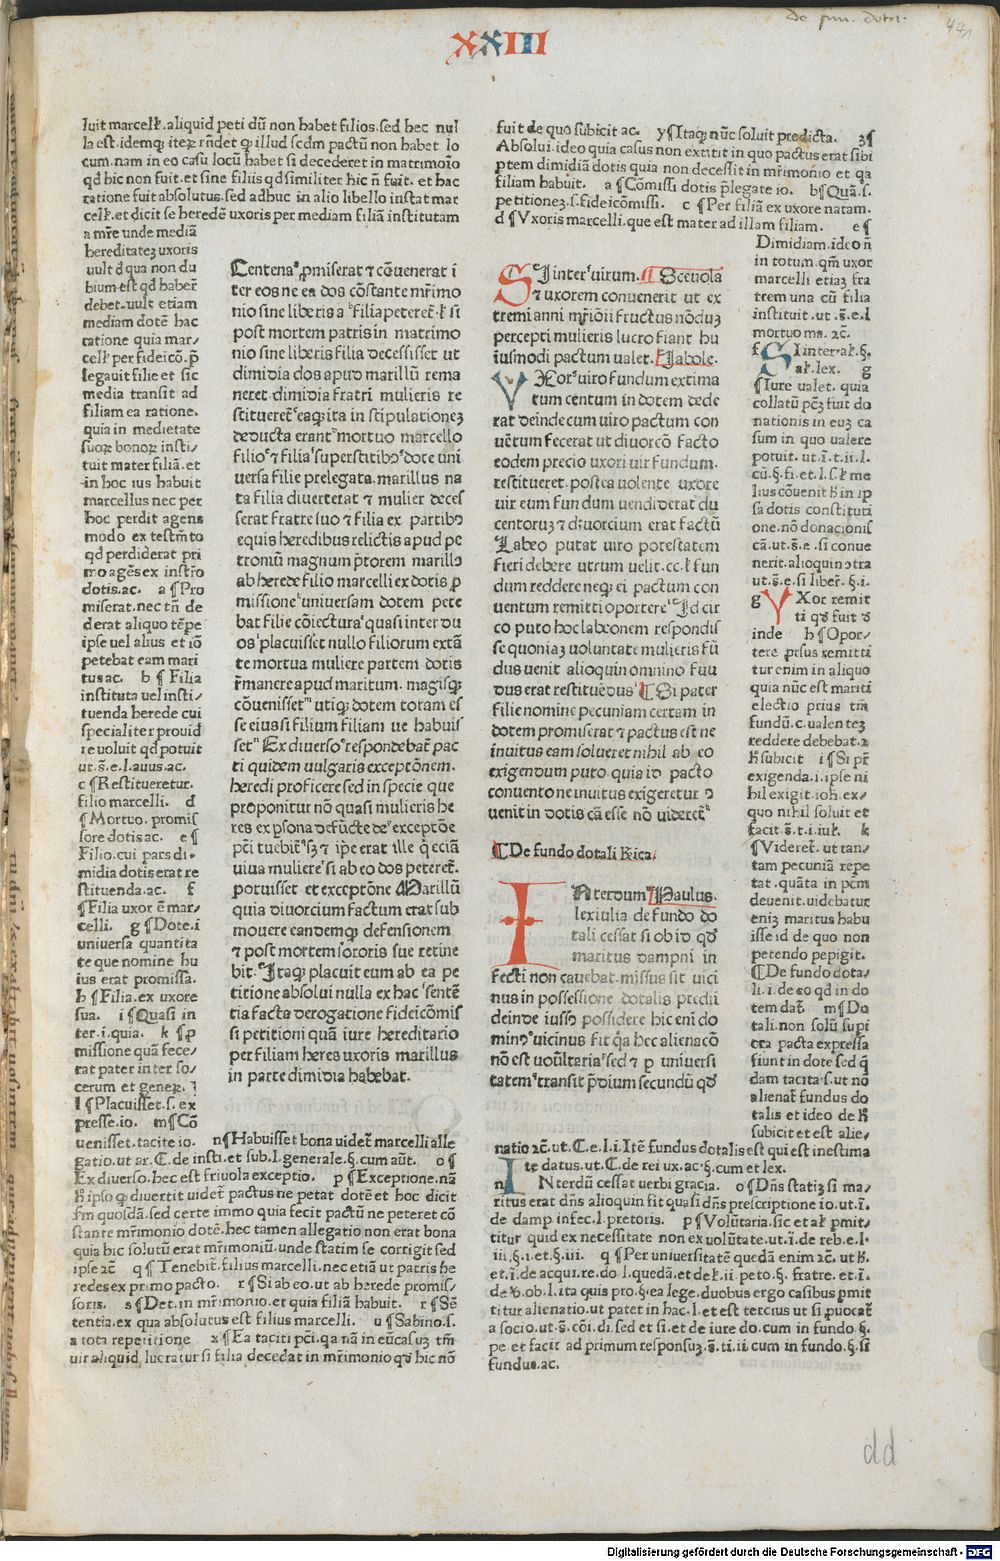 De fun. dotal.
441
XXIII
luit marceł. aliquid peti dū non habet filios. sed hec nul
la est. idemqꝫ iteꝝ rn̄det qꝫ illud scdm pactū non habet lo
cum. nam in eo casu locū habet si decederet in matrimoīo
qd hic non fuit. et sine filiis qd similiter hic n̄ fuit. et hac
ratione fuit absolutus. sed adhuc in alio libello instat mar
celł. et dicit se heredē uxoris per mediam filiā institutam
a mr̄e unde mediā
hereditateꝫ uxoris
uult d qua non du
bium est qd haber̄
debet. uult etiam
mediam dotē hac
ratione quia mar/
celł per fideicō. p̄
legauit filie et sic
media transit ad
filiam ea ratione.
quia in medietate
suoꝝ bonoꝝ insti/
tuit mater filiā. et
in hoc ius habuit
marcellus nec per
hoc perdit agens
modo ex testm̄to
qd perdiderat pri
mo agēs ex instr̄o
dotis. ac. a ¶ Pro
miserat. nec tn̄ de
derat aliquo tēpe
ipse uel alius et iō
petebat eam mari
tus ac. b ¶ Filia
instituta uel insti/
tuenda herede cui
specialiter prouid
re uoluit qd potuit
ut. s̄. e. l. auus. ac.
c ¶ Restitueretur.
filio marcelli. d
¶ Mortuo. promis
sore dotis ac. e ¶
Filio. cui pars di/
midia dotis erat re
stituenda. ac. f
¶ Filia uxor ē mar/
celli. g ¶ Dote. i
uniuersa quantita
te que nomine hu
ius erat promissa.
h ¶ Filia. ex uxore
sua. i ¶ Quasi in
ter. i. quia. k ¶ p
missione quā fece/
rat pater inter so/
cerum et geneꝝ.
l ¶ Placuisset. s. ex
presse. io. m ¶ Cō
uenisset. tacite io. n ¶ Habuisset bona uidet̄ marcelli alle
gatio. ut ar. C. de insti. et sub. l. generale. §. cum aūt. o ¶
Ex diuerso. hec est friuola exceptio. p ¶ Exceptione. nā
h̄ ipso qꝫ diuertit uidet̄ pactus ne petat dotē et hoc dicit
fm quosdā. sed certe immo quia fecit pactū ne peteret cō
stante mr̄imonio dotē. hec tamen allegatio non erat bona
quia hic solutū erat mr̄imoniū. unde statim se corrigit sed
ipse ⁊c̄ q ¶ Tenebit̄. filius marcelli. nec etiā ut patris he
redes ex primo pacto. r ¶ Si ab eo. ut ab herede promis/
soris. s ¶ Det. in mr̄imonio. et quia filiā habuit. t ¶ Sē
tentia. ex qua absolutus est filius marcelli. u ¶ Sabino. s.
a tota repetitione x ¶ Ea taciti pc̄i. qa nā in eū casuꝫ tm̄
uir aliquid lucratur si filia decedat in mr̄imonio qd hic nō
Centena pmiserat ⁊ cōuenerat i
ter eos ne ea dos cōstante mr̄imo
nio sine liberis a filia peteret̄. ł si
post mortem patris in matrimo
nio sine liberis filia decessisset ut
dimidia dos apud marillū rema
neret. dimidia fratri mulieris re
stitueret̄ eaqꝫ ita in stipulationeꝫ
deducta erant mortuo marcello
filio ⁊ filia superstitibꝫ dote uni
uersa filie prelegata. marillus na
ta filia diuerterat ⁊ mulier deces
serat fratre suo ⁊ filia ex partibꝫ
equis heredibus relictis apud pe
troniū magnum p̄torem marillꝰ
ab herede filio marcelli ex dotis p
missione uniuersam dotem pete
bat filie cōiectura quasi inter du
os placuisset nullo filiorum extā
te mortua muliere partem dotis
r̄manere apud maritum. magisqꝫ
cōuenisset utiqꝫ dotem totam es
se eius si filium filiam ue habuis
set Ex diuerso respondebat̄ pac
ti quidem uulgaris exceptōnem.
heredi proficere sed in specie que
proponitur nō quasi mulieris he
res ex psona defūcte de exceptōe
pc̄i tuebit̄ sꝫ ⁊ ipe erat ille q̄ eciā
uiua muliere si ab eo dos peteret̄.
potuisset et exceptōne Marillū
quia diuorcium factum erat sub
mouere eandemqꝫ defensionem
⁊ post mortem sororis sue retine
bit. Itaqꝫ placuit eum ab ea pe
titione absolui nulla ex hac sentē
tia facta derogatione fideicōmis
si petitioni quā iure hereditario
per filiam heres uxoris marillus
in parte dimidia habebat.
fuit de quo subicit ac. y ¶ Itaqꝫ nūc soluit predicta. z ¶
Absolui. ideo quia casus non extitit in quo pactus erat sibi
ptem dimidiā dotis quia non decessit in mr̄imonio et qa
filiam habuit. a ¶ Cōmissi dotis p̄legate io. b ¶ Quā. s.
petitioneꝫ. s. fideicōmissi. c ¶ Per filiā ex uxore natam.
d ¶ Vxoris marcelli. que est mater ad illam filiam. e ¶
Dimidiam. ideo n̄
in totum. qm̄ uxor
marcelli etiaꝫ fra
trem una cū filia
instituit. ut. s̄. e. l
mortuo ma. ⁊c̄.
f SI inter. ał. §.
ał. lex. g
¶ Iure ualet. quia
collatū pc̄ꝫ fuit do
nationis in euꝫ ca
sum in quo ualere
potuit. ut. ī. t. ii. l.
cū. §. fi. et. l. s. ł me
lius cōuenit h̄ in ip
sa dotis constituti
one. nō donacionis
cā. ut. s̄. e. si conue
nerit. alioquin ↄtra
ut. s̄. e. si liber̄. §. i.
g VXor remit
ti qd fuit d
inde h ¶ Opor/
tere prsus remitti
tur enim in aliquo
quia nūc est mariti
electio prius tm̄
fundū. c. ualenteꝫ
reddere debebat. ⁊
h̄ subicit i ¶ Si pr̄
exigenda. i. ipse ni
hil exigit. ioh. ex/
quo nihil soluit et
facit. s̄. t. i. iuł. k
¶ Videret̄. ut tan/
tam pecuniā repe
tat. quāta in pc̄m
deuenit. uidebatur
eniꝫ maritus habu
isse id de quo non
petendo pepigit.
¶ De fundo dota/
li. i. de eo qd in do
tem dat̄. m ¶ Do
tali. non solū supi
ora pacta expressa
fiunt in dote sed q̄
dam tacita s. ut nō
alienat̄ fundus do
talis et ideo de h̄
subicit et est alie/
natio ⁊c̄. ut. C. e. l. i. Itē fundus dotalis est qui est inestima
te datus. ut. C. de rei ux. ac. §. cum et lex.
n INterdū cessat uerbi gracia. o ¶ Dn̄s statiꝫ si ma/
ritus erat dn̄s alioquin fit quasi dn̄s prescriptione io. ut. ī.
de damp infec. l. pretoris. p ¶ Volūtaria. sic et ał pmit/
titur quid ex necessitate non ex uolūtate. ut. ī. de reb. e. l.
iii. §. i. et. §. iii. q ¶ Per uniuersitatē quedā enim ⁊c̄. ut h̄.
et. ī. de acqui. re. do l. quedā. et de ł. ii. peto. §. fratre. et. ī.
de v. ob. l. ita quis pro. §. ea lege. duobus ergo casibus pmit
titur alienatio. ut patet in hac. l. et est tercius ut si puocat̄
a socio. ut. s̄. cōi. di. sed et si. et de iure do. cum in fundo. §.
pe. et facit ad primum responsuꝫ. s̄. ti. ii. cum in fundo. §. si
fundus. ac.
SI inter uirum. ¶ Sceuola
⁊ uxorem conuenerit ut ex
tremi anni mr̄iōii fructus nōduꝫ
percepti mulieris lucro fiant hu
iusmodi pactum ualet. ¶ Jabole.
VXor uiro fundum extima
tum centum in dotem dede
rat deinde cum uiro pactum con
uētum fecerat ut diuorcō facto
eodem precio uxori uir fundum.
restitueret. postea uolente uxore
uir eum fundum uendiderat du
centoruꝫ ⁊ diuorcium erat factū
Labeo putat uiro potestatem
fieri debere utrum uelit. cc. ł fun
dum reddere neqꝫ ei pactum con
uentum remitti oportere Id cir
co puto hoc labeonem respondis
se quoniaꝫ uoluntate mulieris fū
dus uenit alioquin omnino fun
dus erat restituēdus ¶ Si pater
filie nomine pecuniam certam in
dotem promiserat ⁊ pactus est ne
inuitus eam solueret nihil ab eo
exigendum puto quia id pacto
conuento ne inuitus exigeretur ↄ
uenit in dotis cā esse nō uideret̄
¶ De fundo dotali R̄ica.
INterdum ¶ Paulus.
lex iulia de fundo do
tali cessat si ob id qd
maritus dampni in
fecti non cauebat. missus sit uici
nus in possessione dotalis predii
deinde iussꝰ possidere hic eni do
minꝰ uicinus fit qa hec alienacō
nō est uoūltaria sed ⁊ p uniuersi
tatem transit p̄dium secundū qd
dd
Digitalisierung gefördert durch die Deutsche Forschungsgemeinschaft - DFG